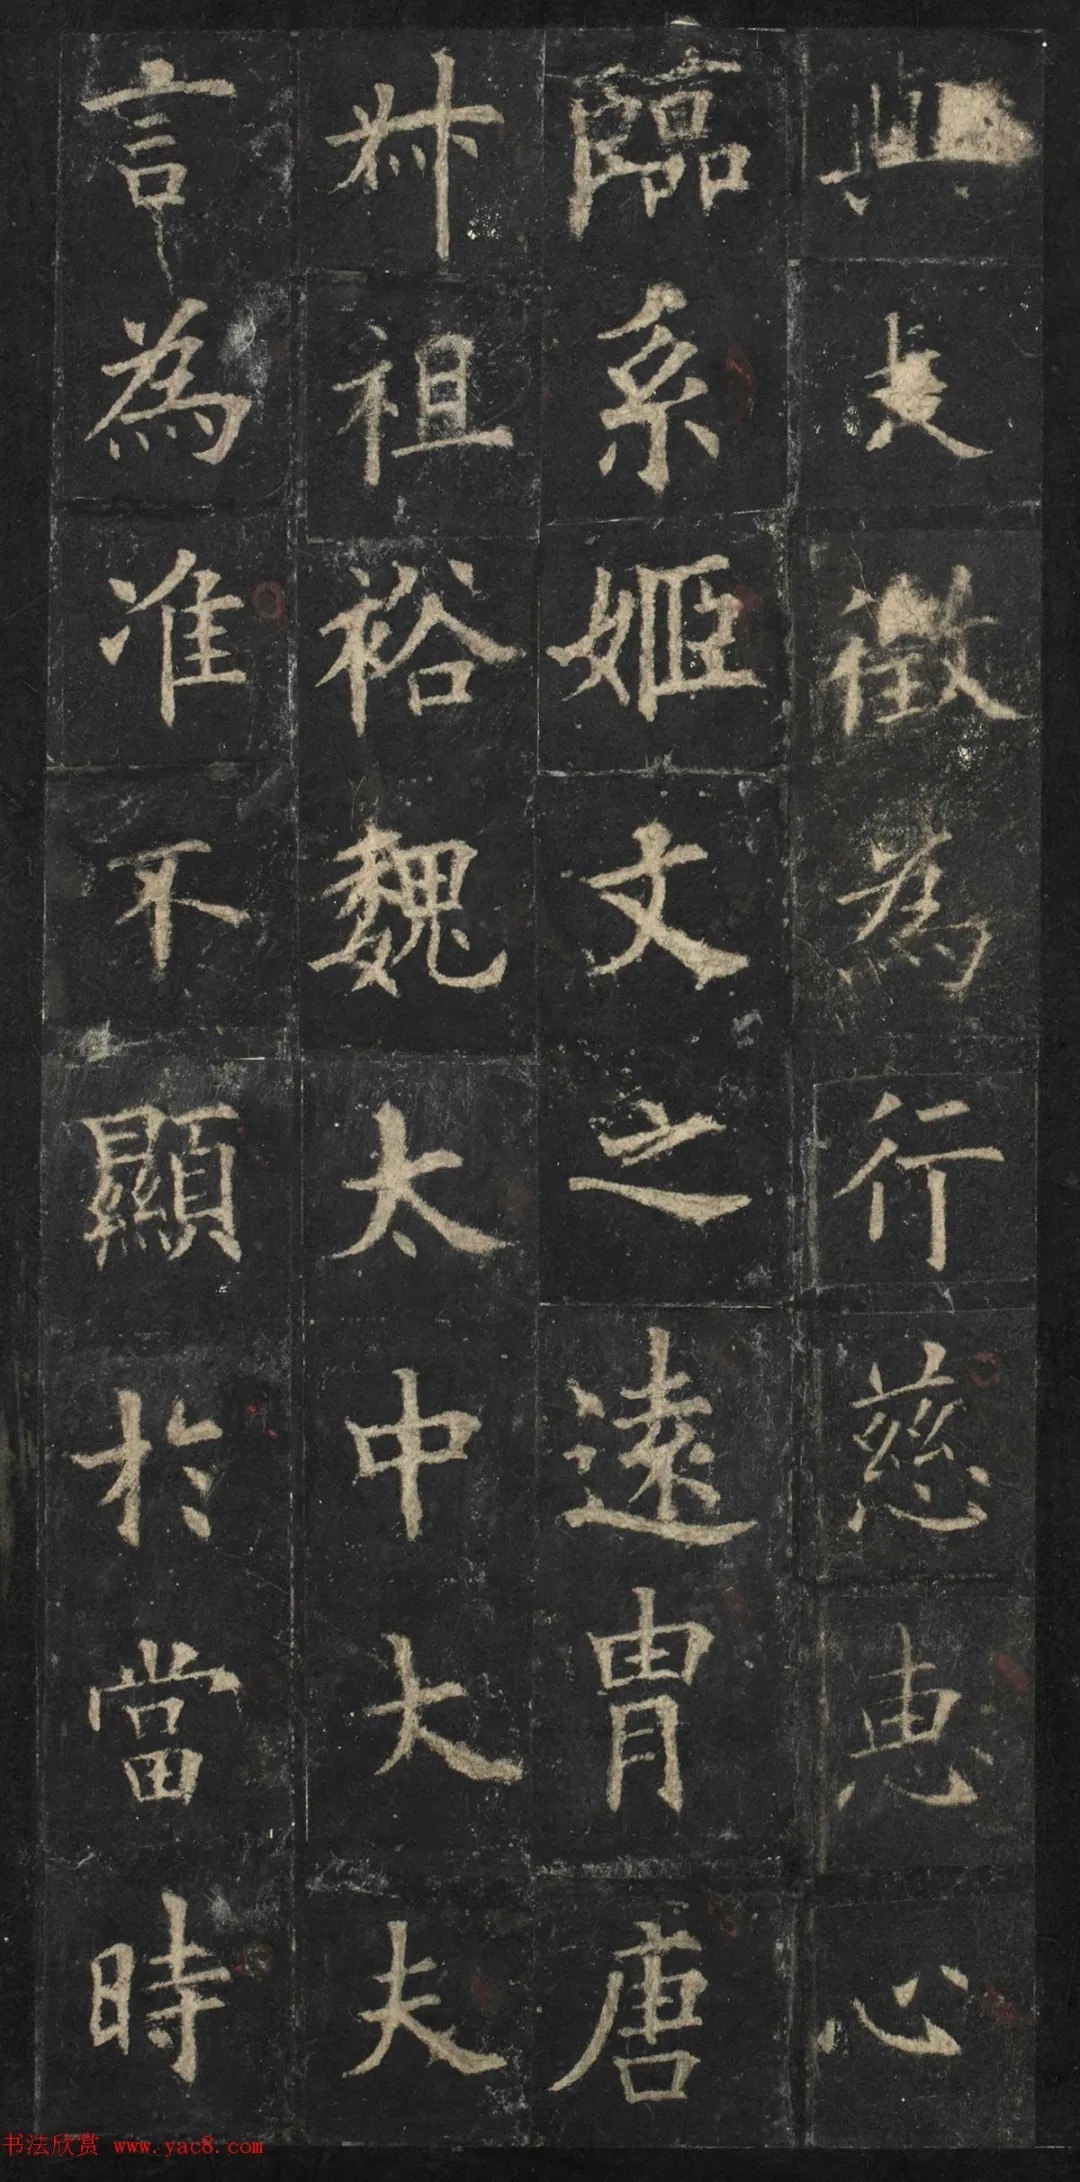 徵為行慈惠心
臨系姬文之遠冑唐
叔祖裕魏太中大夫
言為准不顯於當時
书法欣赏 www.yac8.com